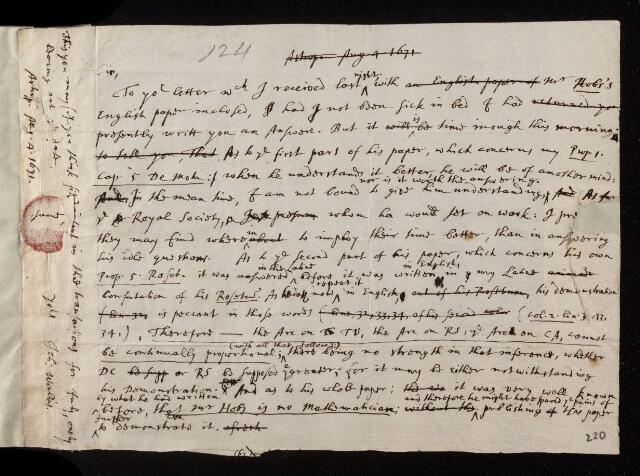 124
Astrop Aug 4 1671
Sir,
To yor letter wch I received last night with an English paper of Mr Hobs's
English paper inclosed, had I not been sick in bed I had returned you
presently writt you an Answere. But it will be is time inough this morning
to tell you, that As to ye first part of his paper, which concerns my Prop 1.
Cap. 5 De Motu: when he understands it better, he will be of another mind:
And In the mean time, I am not bound to give him understanding, nor is it worth the answering. And As for
ye Royal Society, whom he would set on work: I
they may find where about in to imploy their time better, than in answering
his idle questions. As to ye second part of his paper, which concerns his own
Prop 5. Roset. it was answered in the Latine before it was written in English, by my Latine
Confutation of his Rosetum. As now repeat it in English, out of his Rosetum, his demonstration
is peccant in those words (col. 2. lin 31. 33.
34.), Therefore the Arc on TV, the Arc on RS, ye Arc on CA, cannot
be continually proportional; (with all that follows) there being no strength in that inference, whether
DC be supp or RS be supposed ye greater; for it may be either notwithstanding
his Demonstration. And as to his whole paper; it was very well known
before, by what he had written that Mr Hobs is no Mathematician; and therefore he might have spared ye pains of without the publishing of this paper
to further demonstrate it.
220
Astrop Aug. 4. 1671.
Yor
Joh: Wallis